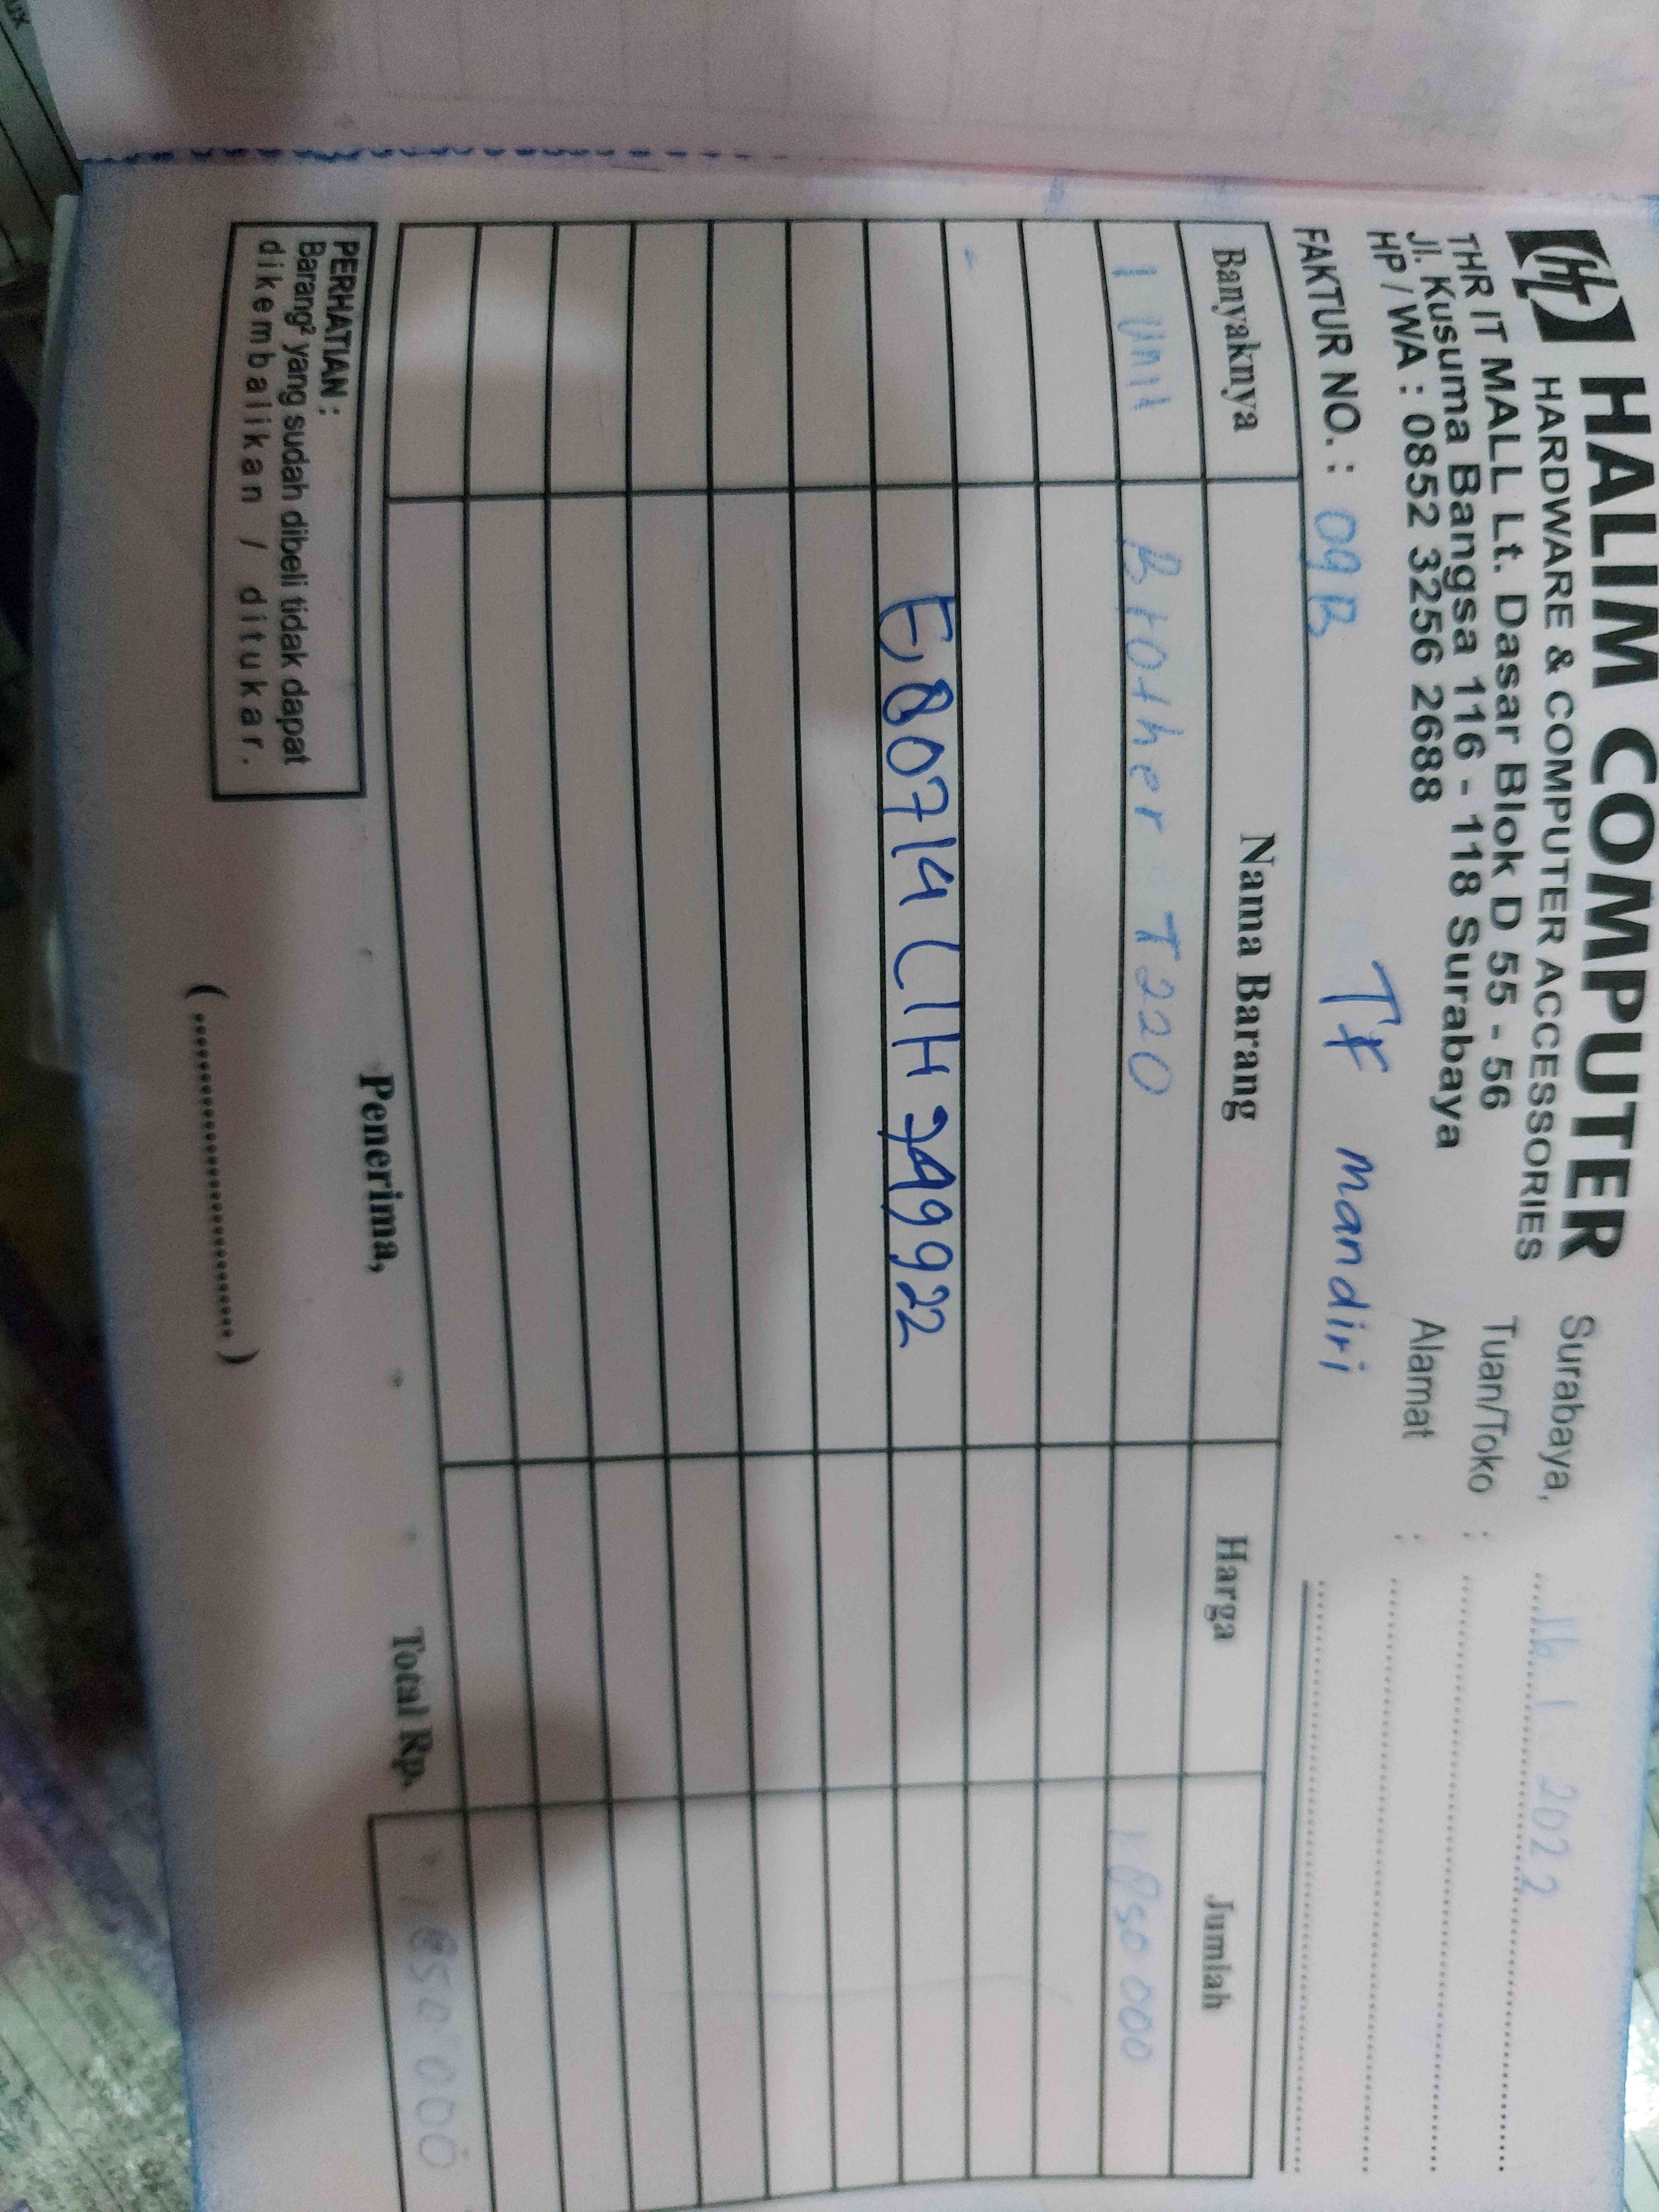 HALIM COMPUTER
HARDWARE & COMPUTER ACCESSORIES
THR IT MALL Lt. Dasar Blok D 55 - 56
Jl. Kusuma Bangsa 116 - 118 Surabaya
HP / WA : 0852 3256 2688
Surabaya, 16 1 2022
Tuan/Toko :
Alamat :
FAKTUR NO. : 09B TF mandiri
Banyaknya Nama Barang Harga Jumlah
1 unit Brother T220 1850000
E80714 399922
PERHATIAN :
Barang² yang sudah dibeli tidak dapat
dikembalikan / ditukar.
Penerima,
(....................................)
Total Rp. 1850000